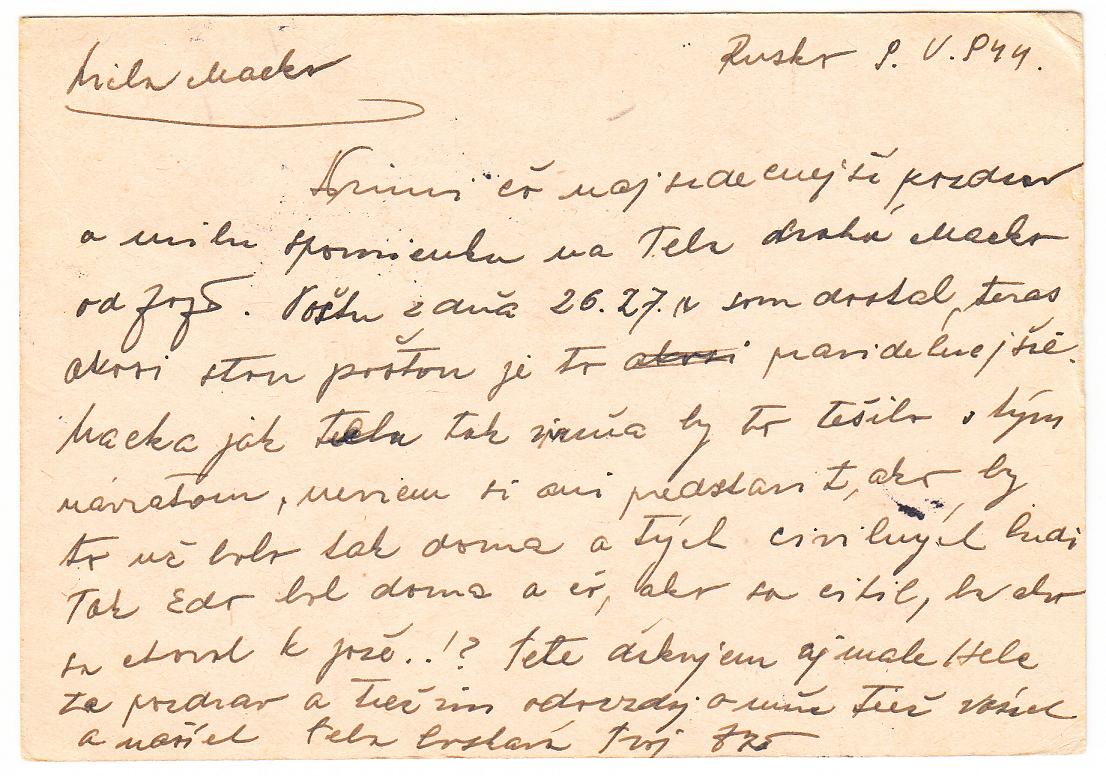 Milá Macko Rusko 9. V. 944.
Prijmi čo najsrdečnejší pozdrav
a milú spomienku na Teba drahá Macko
od Jožo. Poštu z dňa 26. 27. som dostal, teraz
akosi stou poštou je to akosi pravidelnejšie.
Macka jak Teba tak mňa by to tešilo s tým
návratom, neviem si ani predstaviť, ako by
to už bolo tak doma a tých civilných ludi
Tak Edo bol doma a čo, ako sa citil, ako
sa choval k ..!? Tete ďakujem aj male Hele
za pozdrav a tiež im odovzdaj o mňa tiež
a našich Teba bozkáva Tvoj